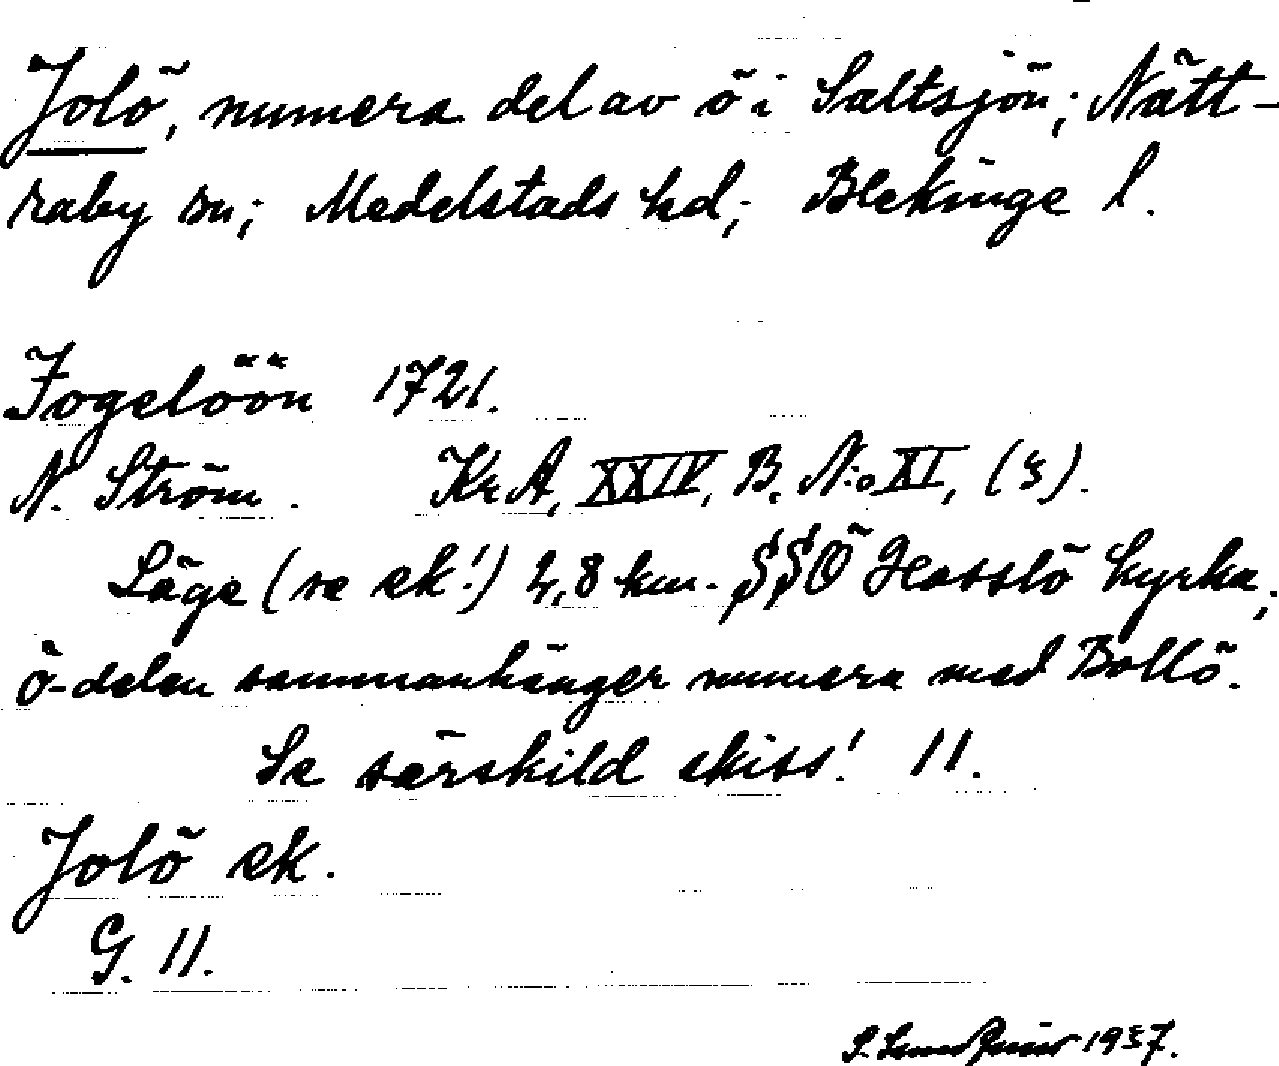 Jolö, numera del av ö i Saltsjön; Nätt-
raby sn; Medelstads hd; Blekinge l.
Fogelöön 1721.
N. Ström. Kr.A, XXIV, B. N:o XI, (3).
Läge (se ek!) 4,8 km. SSÖ Hasslö kyrka;
ö-delen sammanhänger numera med Bollö.
Se särskild skiss! 11.
Jolö ek.
G. 11.
1937.